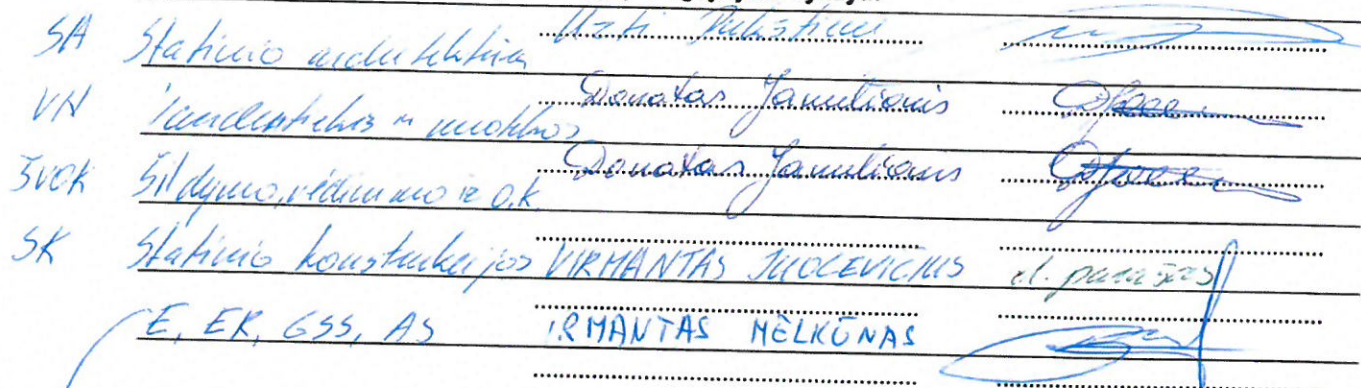 SA Statinio architektūra
VN Vandentiekis ir nuotekos Donatas Jamulionis
ŠVOK Šildymo, vėdinimo ir o.k. Donatas Jamulionis
SK Statinio konstrukcijos VIRMANTAS JUOCEVIČIUS el. parašas
E, ER, GSS, AS IRMANTAS MĖLKŪNAS